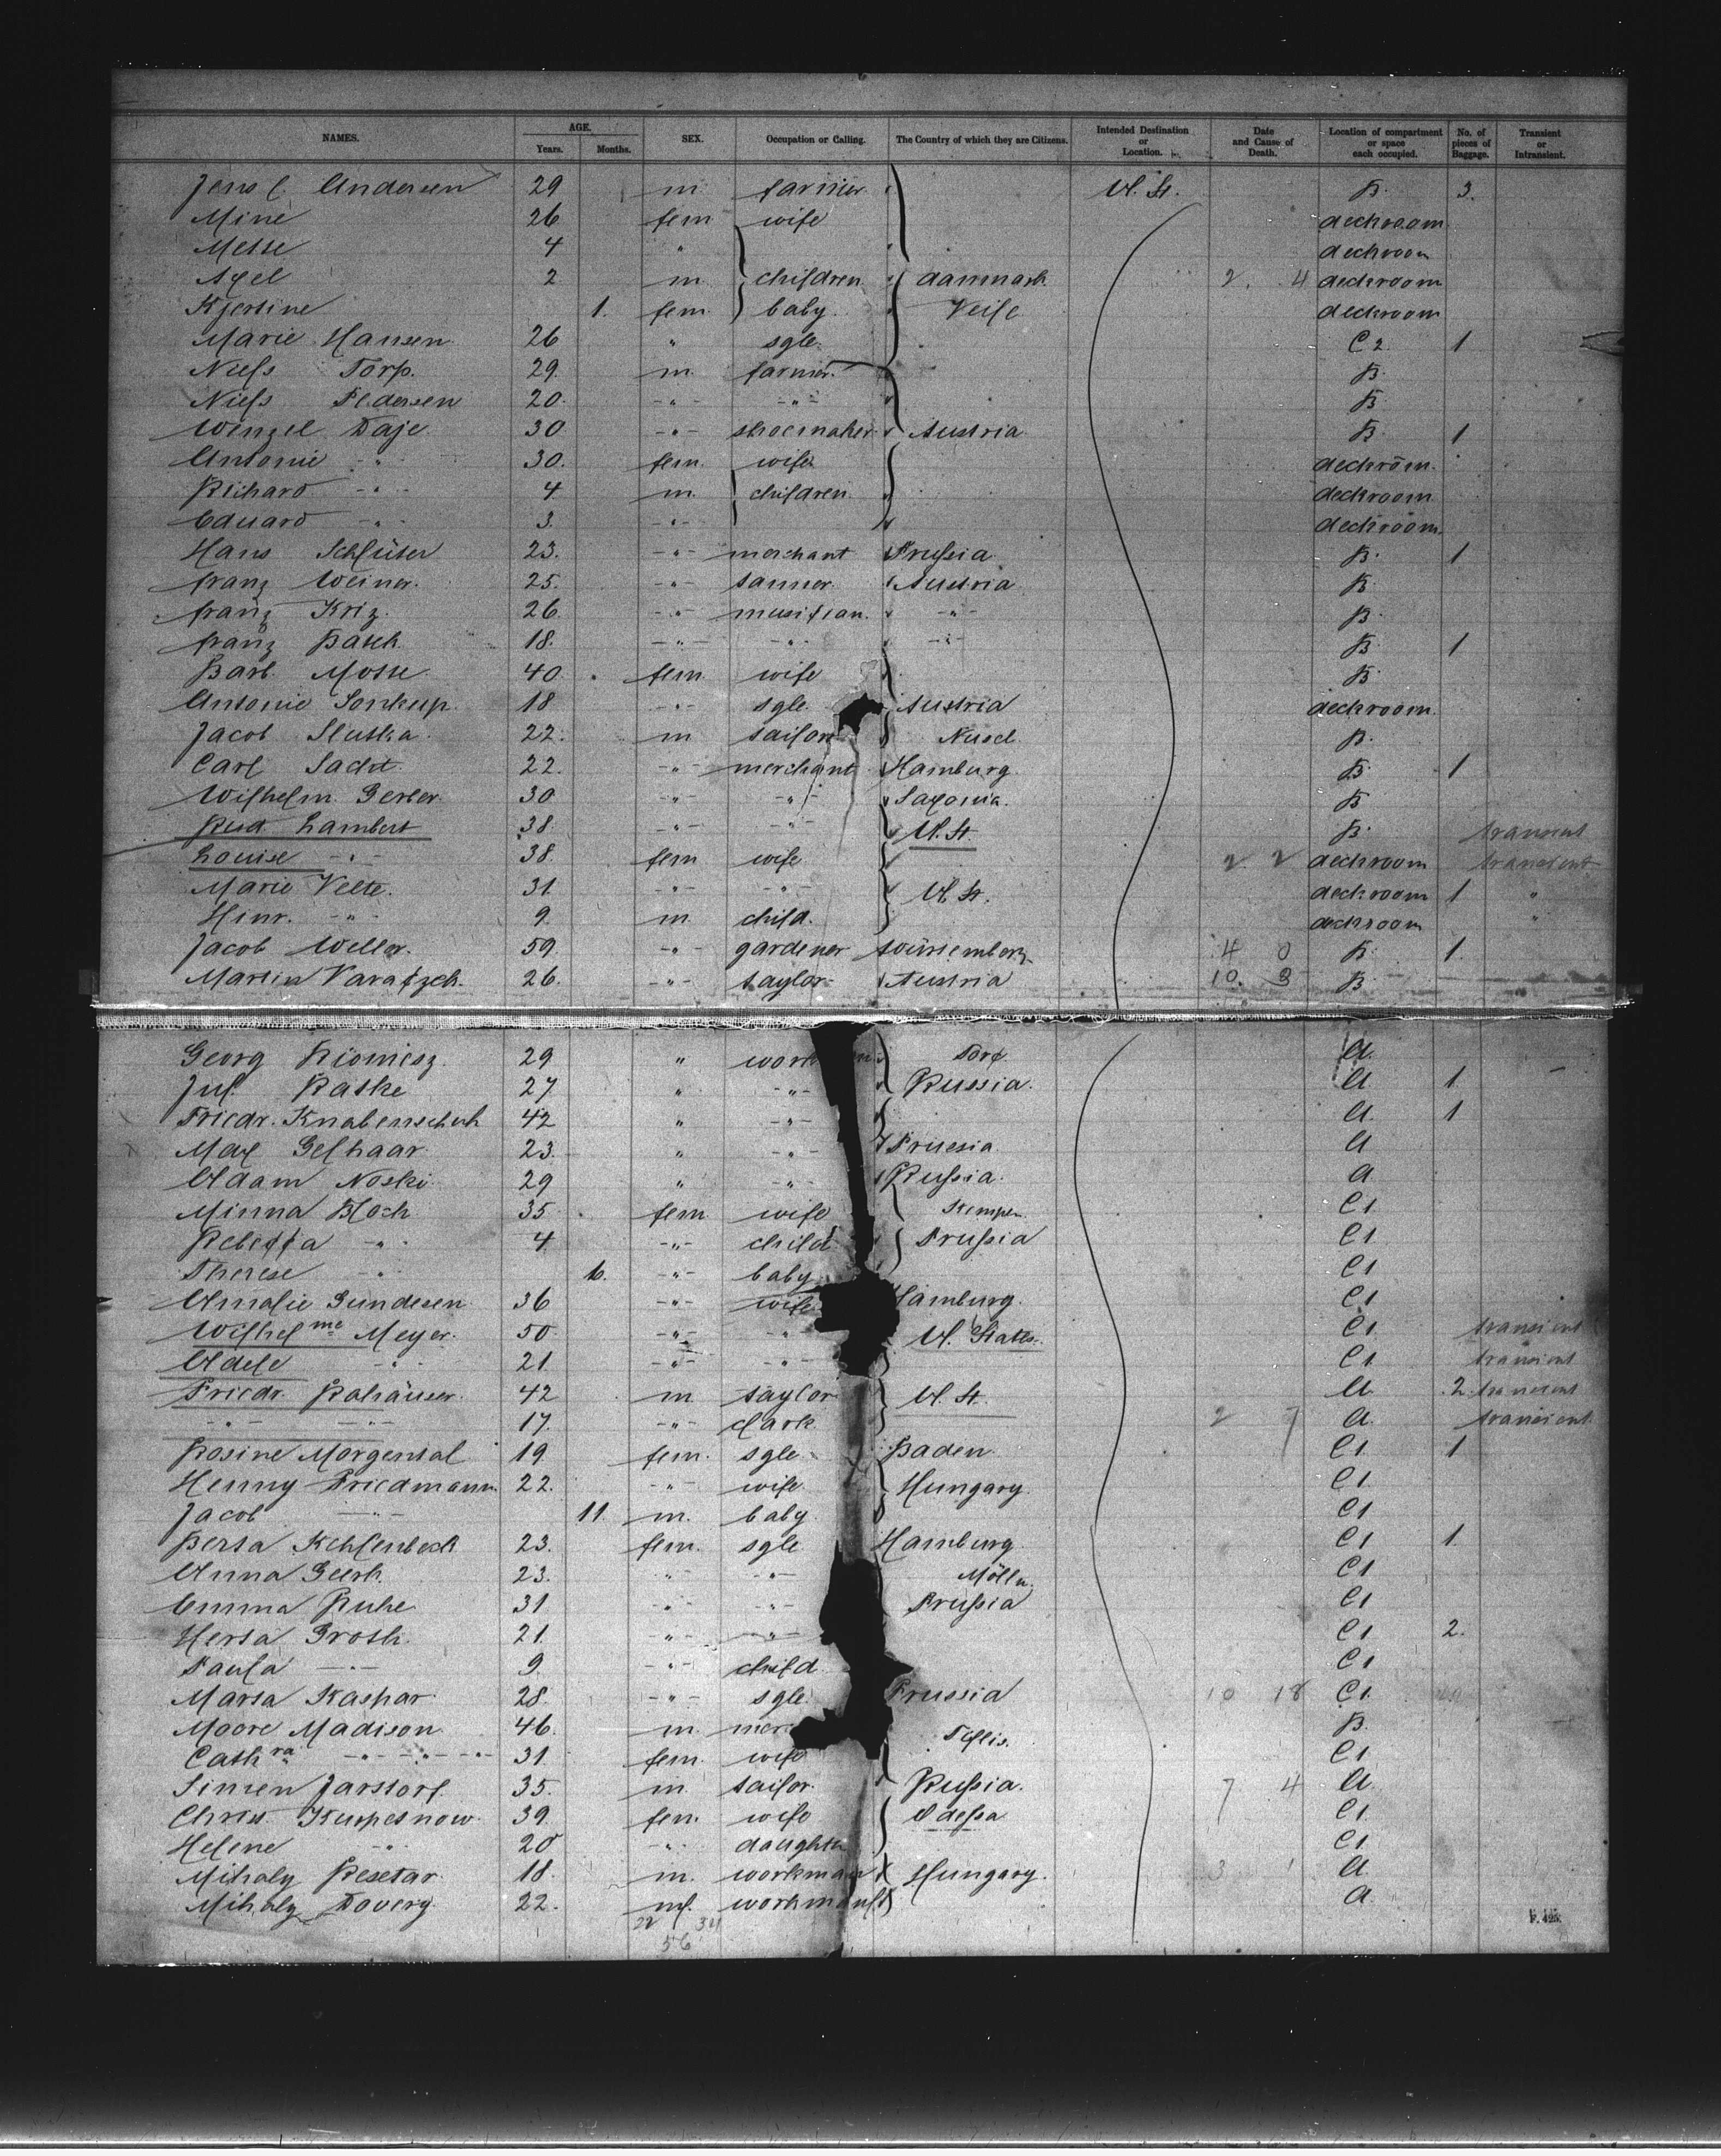 NAMES. AGE. Years. Months. SEX. Occupation or Calling. The Country of which they are Citizens. Intended Destination or Location. Date and Cause of Death. Location of compartment or space each occupied. No. of pieces of Baggage. Transient or Intransient.
Jens C. Andersen 29 m. farmer U. St. B. 3.
Mine 26 fem wife deckroom
Mette 4 " deckroom
Agel 2 m. children danmark 2. 4 deckroom
Kjerstine 1. fem. baby. Veile deckroom
Marie Hansen 26 " sgle. C 2. 1
Niels Torp. 29. m. farmer. B.
Niels Pedersen 20. -"- -"- B.
Wenzel Daje 30 -"- shoemaker Austria B. 1
Antonie -"- 30. fem. wife deckroom.
Richard -"- 4 m. children deckroom
Eduard -"- 3. -"- deckroom
Hans Schlüter 23. -"- merchant Prussia. B. 1
franz Weiner. 25. -"- tanner. Austria B.
franz Kriz. 26. -"- musician. -"- B.
franz Basch 18. -"- -"- -"- B. 1
Barb. Motte 40. fem wife B.
Antonie Sonkup. 18 -"- sgle Austria deckroom.
Jacob Slutka. 22. m. sailor B.
Carl Sacht. 22. -"- merchant Hamburg. B. 1
Wilhelm Gerber. 30 -"- -"- Saxonia. B
Rud. Lambert 38. -"- -"- U. St. B. transient
Louise -"- 38. fem wife 2 2 deckroom transient
Marie Velte. 31. -"- -"- U. St. deckroom 1 "
Hinr. -"- 9. m. child. deckroom "
Jacob Weller. 59. -"- gardener Würtemberg 4 0 B. 1.
Martin 26. -"- taylor Austria 10. 3 B.
Georg 29 " A.
Jul. Raske 27 " -"- Russia. A. 1
Friedr. Knabenschuh 42 " -"- A. 1
Max Gelhaar 23. " -"- Prussia. A
Adam Noski 29 " -"- Russia. A
Minna Bloch 35. fem wife Kempen C1
Rebecca -"- 4. -"- child Prussia C1
Therese -"- 6. -"- baby. C1
Amalie Gundesen 36 -"- wife Hamburg. C1
Wilhelme Meyer. 50. -"- -"- U. States. C1 transient
Adele -"- 21. -"- -"- C1. transient
Friedr. Rahäuser 42 m. taylor U. St. A. 2. transient
-"- -"- 17. -"- clark. 2 7 A. transient
Rosine Morgental 19. fem. sgle Baden. C1. 1
Henny Friedmann. 22. -"- wife Hungary. C1.
Jacob -"- 11. m. baby. C1
Berta Kehlenbeck 23. fem. sgle Hamburg. C1 1.
Anna 23. -"- -"- Mölln. C1
Emma Ruhe 31. -"- -"- Prussia C1
Herta Groth. 21. -"- -"- C1 2.
Paula -"- 9. -"- child. C1
Marta Kaspar 28. -"- sgle. Prussia 10 18 C1.
Moore Madison 46. m. mer Tiflis. B.
Cathra -"- -"- 31. fem. wife C1
Simen Jarstorf. 35. m. sailor. Russia. 7 4 A.
Christ. Kuspesnow. 39. fem. wife Odessa C1
Helene -"- 20 -"- daughter C1
Mihaly Resetar. 18. m. workman Hungary. 3 1 A.
Mihaly Doverg. 22. m. workman A.
22 34
56
F. 425.